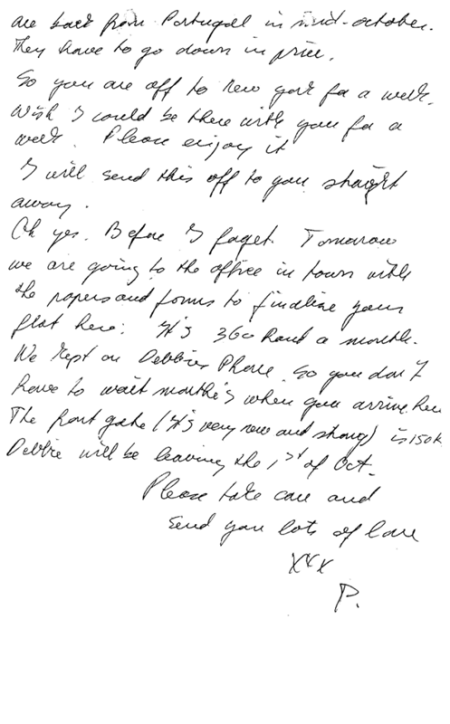 are back from Portugal in mid-october.
They have to go down in price.
So you are off to New York for a week.
Wish I could be there with you for a
week. Please enjoy it
I will send this off to you straight
away.
Oh yes. Before I forget. Tomorrow
we are going to the office in town with
the papers and forms to finalise your
flat here. It's 360 Rand a month.
We kept on Debbies Phone. So you don't
have to wait months when you arrive here
The front gate (It's very new and strong) is 150R
Debbie will be leaving the 1st of Oct.
Please take care and
send you lots of love
xxx
P.